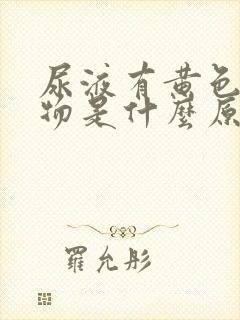 尿液有黄色
物是什麼原
羅允彤